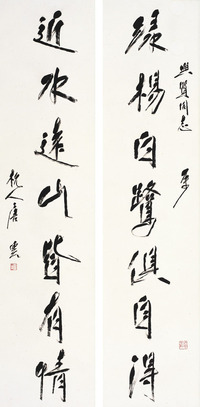 賢同志
綠楊白鷺俱自得
近水遠山皆有情
杭人唐雲